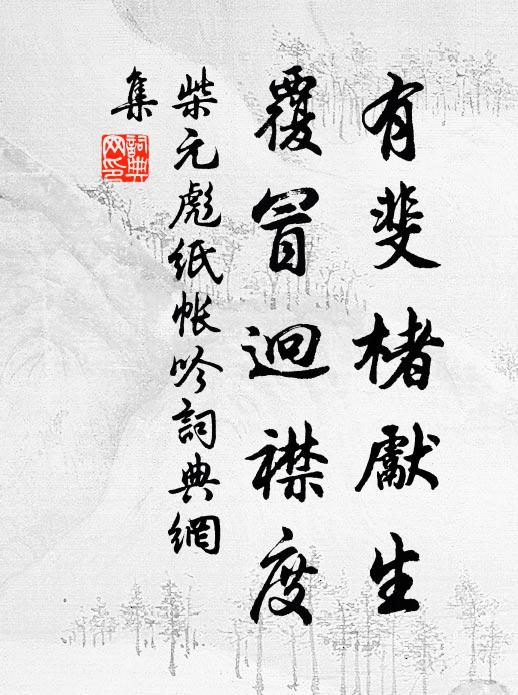 有斐楮獻生
覆冒迥襟度
柴元彪紙帳吟詞典網
集
詞典